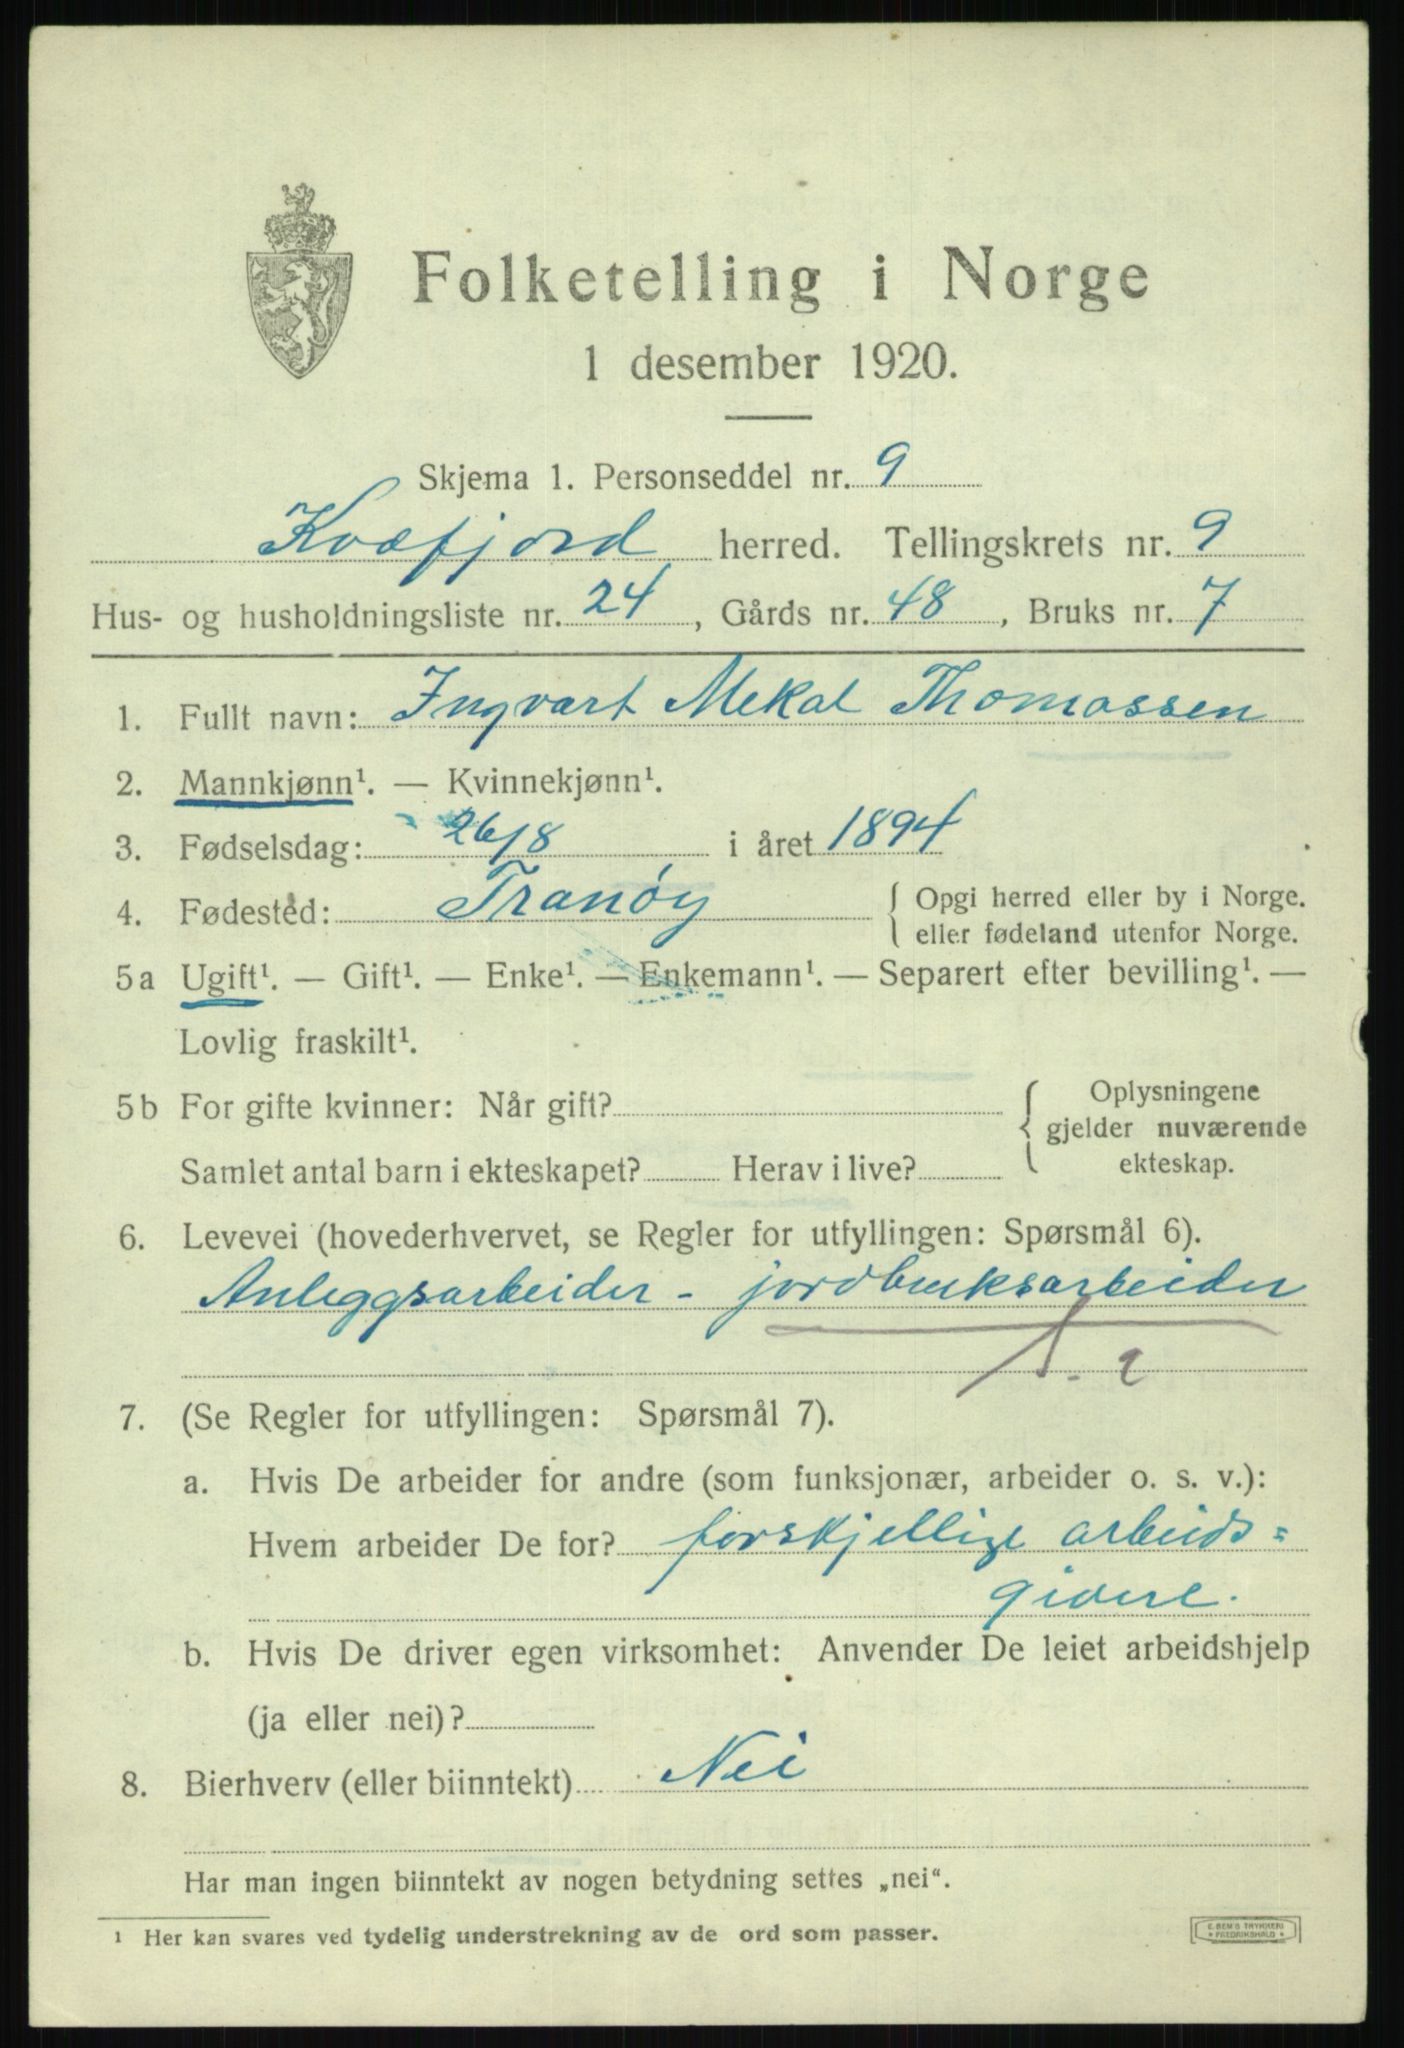 Folketelling i Norge
1 desember 1920.
Skjema 1. Personseddel nr. 9
Kvæfjord herred. Tellingskrets nr. 9
Hus- og husholdningsliste nr. 24, Gårds nr. 48, Bruks nr. 7
1. Fullt navn: Ingvart Mekal Thomassen
2. Mannkjønn¹. — Kvinnekjønn¹.
3. Fødselsdag: 26/8 i året 1894
4. Fødested: Tranöy { Opgi herred eller by i Norge.
eller fødeland utenfor Norge.
5a Ugift¹. — Gift¹. — Enke¹. — Enkemann¹. — Separert efter bevilling¹. —
Lovlig fraskilt¹.
5b For gifte kvinner: Når gift? { Oplysningene
gjelder nuværende
Samlet antal barn i ekteskapet? Herav i live? ekteskap.
6. Levevei (hovederhvervet, se Regler for utfyllingen: Spørsmål 6).
Anleggsarbeider - jordbruksarbeider
7. (Se Regler for utfyllingen: Spørsmål 7).
a. Hvis De arbeider for andre (som funksjonær, arbeider o. s. v.):
Hvem arbeider De for? forskjellige arbeids=
givere.
b. Hvis De driver egen virksomhet: Anvender De leiet arbeidshjelp
(ja eller nei)?
8. Bierhverv (eller biinntekt) Nei
Har man ingen biinntekt av nogen betydning settes „nei“.
¹ Her kan svares ved tydelig understrekning av de ord som passer.
E. SEM'S TRYKKERI
* FREDRIKSHALD *